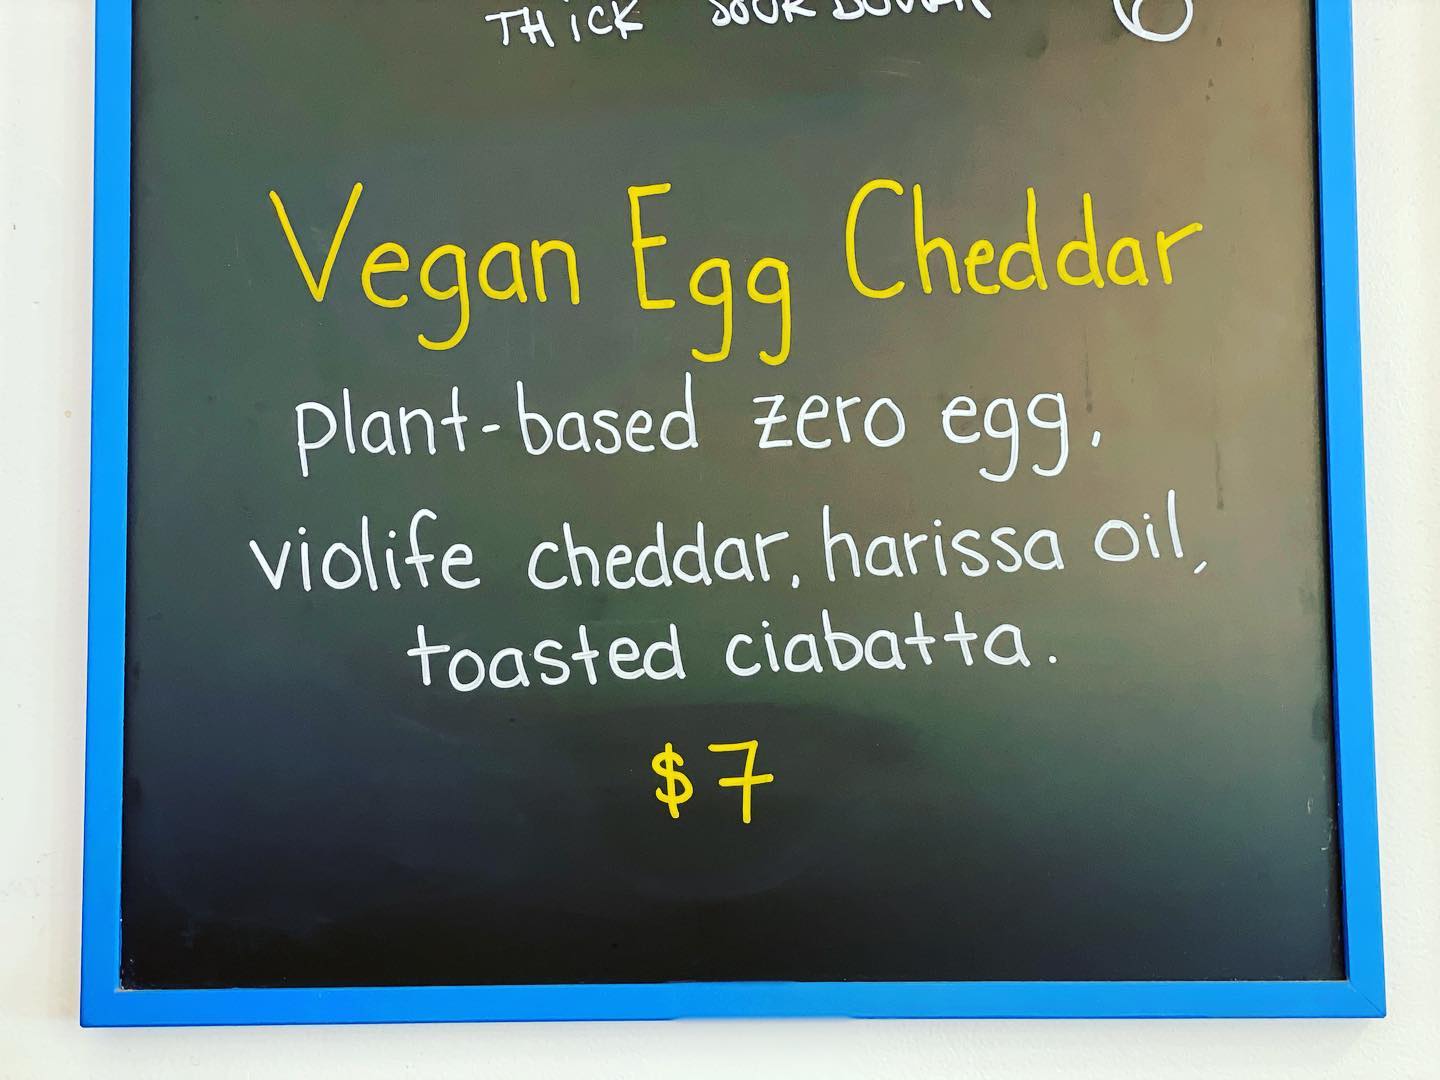 THiCK SOURDOUGH 6
Vegan Egg Cheddar
plant-based zero egg,
violife cheddar, harissa oil,
toasted ciabatta.
$7